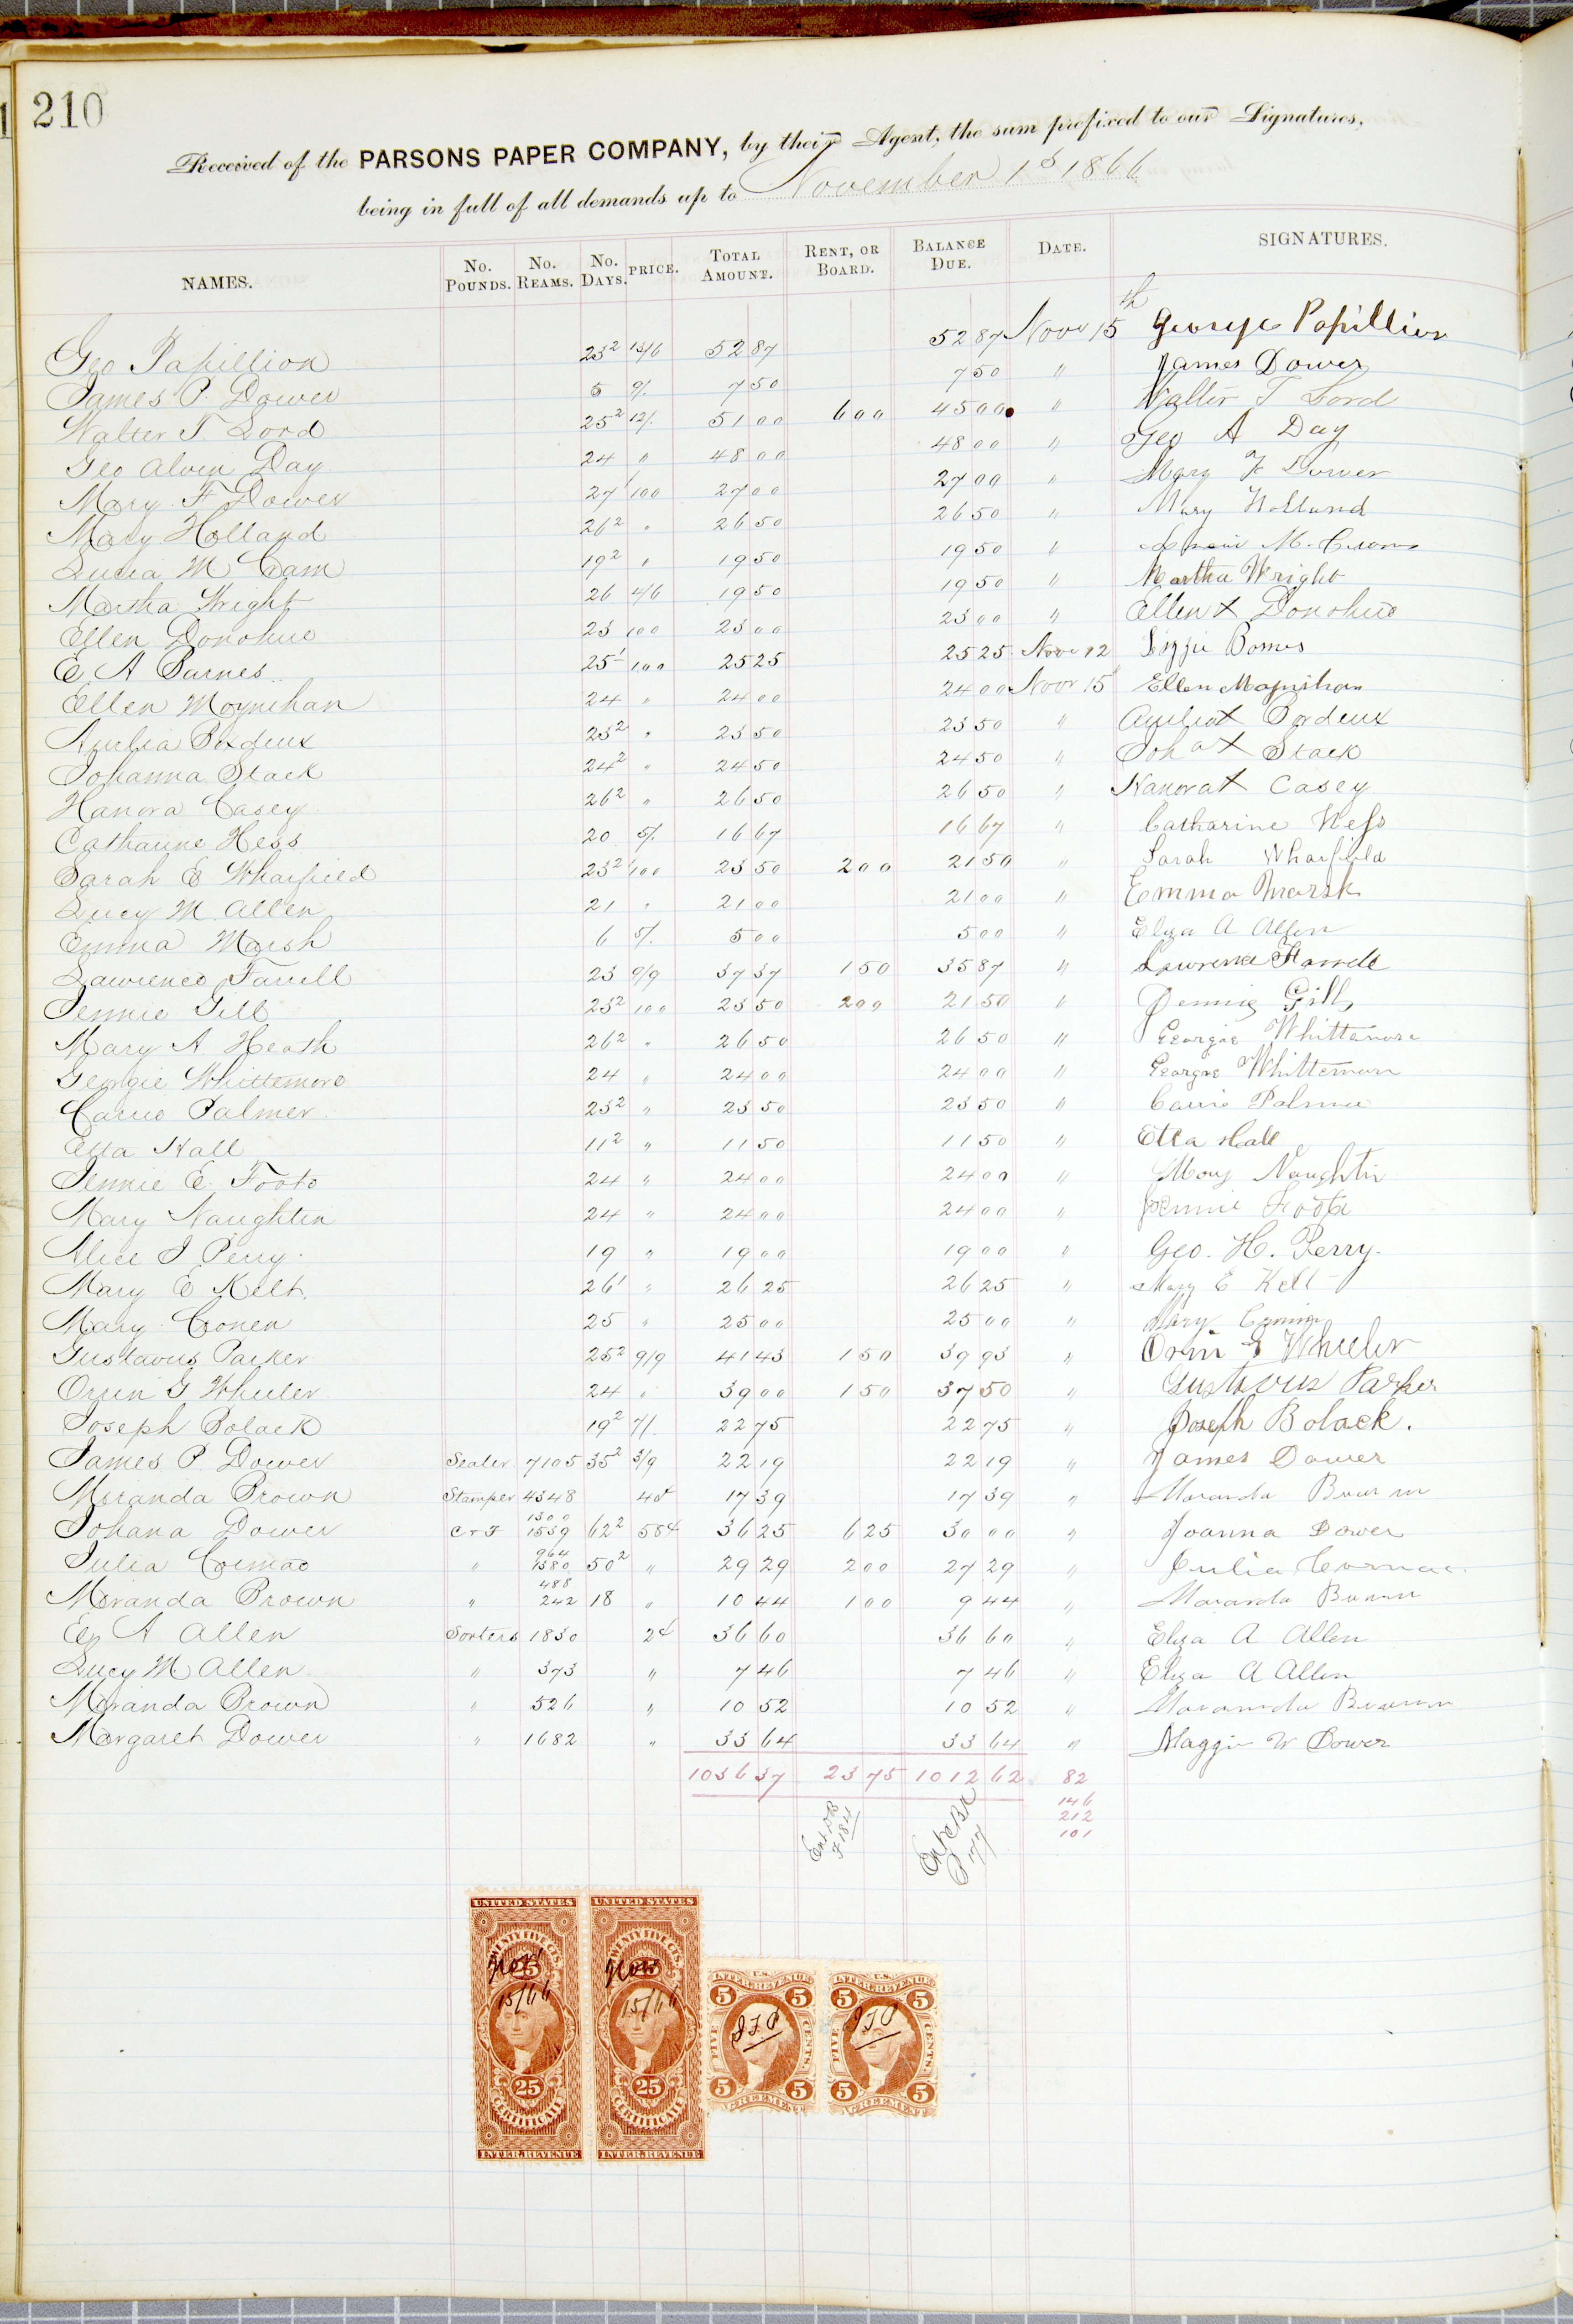 210
Received of the PARSONS PAPER COMPANY, by their Agent, the sum prefixed to our Signatures,
being in full of all demands up to November 1st 1866
NAMES. No. Pounds. No. Reams. No. Days. PRICE. Total Amount. Rent, or Board. Balance Due. Date. SIGNATURES.
Geo Papillion 23² 13/6 52 87 52 87 Novr 15th George Papillion
James P. Dower 5 9/. 7 50 7 50 " James Dower
Walter T. Lord 25² 12/. 51 00 6 00 45 00 " Walter T Lord
Geo Alven Day 24 " 48 00 48 00 " Geo A Day
Mary F Dower 27 100 27 00 27 00 " Mary F Dower
Mary Holland 26² " 26 50 26 50 " Mary Holland
Lucia M Cam 19² " 19 50 19 50 "
Martha Wright 26 4/6 19 50 19 50 " Martha Wright
Ellen Donohue 23 100 23 00 23 00 " Ellen X Donohue
E A Barnes 25¹ 100 25 25 25 25 Novr 12 Lizzie Barnes
Ellen Moynihan 24 " 24 00 24 00 Novr 15 Ellen Moynihan
Amelia Bordeux 23² " 23 50 23 50 " Amelia X Bordeux
Johanna Stack 24² " 24 50 24 50 " Joha X Stack
Hanora Casey 26² " 26 50 26 50 " Hanora X Casey
Catharine Hess 20 5/. 16 67 16 67 " Catharine Hess
Sarah E Wharfield 23² 100 23 50 2 00 21 50 " Sarah Wharfield
Lucy M Allen 21 " 21 00 21 00 " Emma Marsh
Emma Marsh 6 5/. 5 00 5 00 " Eliza A Allen
Lawrence Farrell 23 9/9 37 37 1 50 35 87 " Lawrence Farrell
Jennie Gill 23² 100 23 50 2 00 21 50 " Jennie Gill
Mary A Heath 26² " 26 50 26 50 " Georgie Whittemore
Georgie Whittemore 24 " 24 00 24 00 " Georgie Whittemore
Carrie Palmer 23² " 23 50 23 50 " Carrie Palmer
Etta Hall 11² " 11 50 11 50 " Etta Hall
Jennie E. Foote 24 " 24 00 24 00 " Mary Naughtin
Mary Naughten 24 " 24 00 24 00 " Jennie Foote
Alice J Perry 19 " 19 00 19 00 " Geo. H. Perry.
Mary E Kelt 26¹ " 26 25 26 25 " Mary E Kelt
Mary Cronen 25 " 25 00 25 00 " Mary
Gustavus Parker 25² 9/9 41 43 1 50 39 93 " Orrin G Wheeler
Orrin G Wheeler 24 " 39 00 1 50 37 50 " Gustavus Parker
Joseph Polack 19² 7/. 22 75 22 75 " Joseph Bolack.
James P Dower Sealer 7105 35² 3/9 22 19 22 19 " James Dower
Miranda Brown Stamper 4348 4¢ 17 39 17 39 " Maranda Brown
Johana Dower C & F 1300 1539 62² 58¢ 36 25 6 25 30 00 " Joanna Dower
Julia Cormac " 964 1380 50² " 29 29 2 00 27 29 " Julia Cormac
Miranda Brown " 488 242 18 " 10 44 1 00 9 44 " Maranda Brown
A Allen Sorters 1830 2¢ 36 60 36 60 " Eliza A Allen
Lucy M Allen " 373 " 7 46 7 46 " Eliza A Allen
Miranda Brown " 526 " 10 52 10 52 " Maranda Brown
Margaret Dower " 1682 " 33 64 33 64 " Maggie W Dower
1036 37 23 75 1012 62 82
146
212
101
UNITED STATES UNITED STATES
TWENTY FIVE CTS. TWENTY FIVE CTS.
Nov 15/66 Nov 15/66
25 25
CERTIFICATE CERTIFICATE
INTER. REVENUE INTER. REVENUE
U.S. INTER. REVENUE U.S. INTER. REVENUE
5 5 5 5
FIVE CENTS. FIVE CENTS.
5 5 5 5
AGREEMENT AGREEMENT